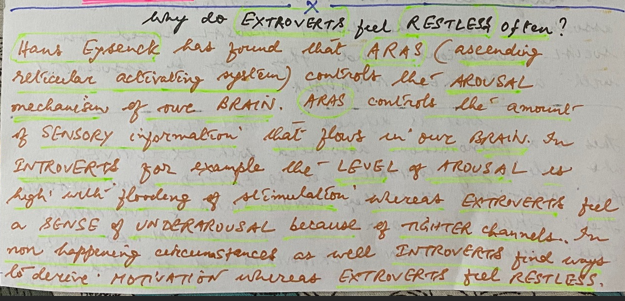 x
Why do EXTROVERTS feel RESTLESS often?
Hans Eysenck has found that ARAS (ascending
reticular activating system) controls the AROUSAL
mechanism of our BRAIN. ARAS controls the amount
of SENSORY information that flows in our BRAIN. In
INTROVERTS for example the LEVEL of AROUSAL is
high with flooding of stimulation whereas EXTROVERTS feel
a SENSE of UNDERAROUSAL because of TIGHTER channels. In
non happening circumstances as well INTROVERTS find ways
to derive MOTIVATION whereas EXTROVERTS feel RESTLESS.